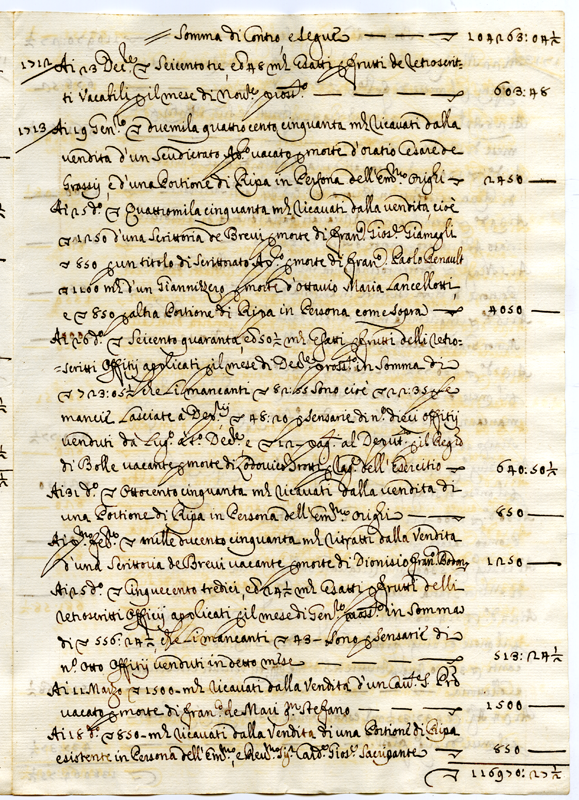 Somma di Contro e segue — — — 104263:04½
1712 Ai 23 Dec.re ▽ Seicento tre, e d 48 mta esatti p frutti de retroscrit-
ti Vacabili p il mese di Nov.re pross.o — — — 603:48
1713 Ai 19 Gen.ro ▽ duemila quattrocento cinquanta mta ricavati dalla
vendita d'un Scudierato Ap.co vacato p morte d'oratio Cesare de
Grassij, e d'una Portione di Ripa in Persona dell'Em.mo Orighi — 2450 —
Ai 25 d.o ▽ Quattromila cinquanta mta ricavati dalla vendita cioè
▽ 1250 d'una Scrittoria de Brevi p morte di Fran.co Gios.e
▽ 850 p un titolo di Scrittorato Ap.co p morte di Fran.co Paolo Renault
▽ 1100 mta d'un Giannizzero p morte d'Ottavio Maria Lancellotti,
e ▽ 850 p altra Portione di Ripa in Persona come sopra — 4050 —
Ai 28 d.o ▽ Seicento quaranta e d 50½ mta esatti p frutti delli retro-
=scritti Offitij applicati p il mese di Dec.re pross.o in Somma di
▽ 723:05½ che li mancanti ▽ 82:55 sono cioè ▽ 22:35 p le
mancie lasciate a ▽ 48:20 p Sensarie di n.o dieci offitij
venduti da e ▽ 12— pag.ti al Deput.o p il Reg.o
di Bolle vacante p morte di Lodovico p l'Esercitio — 640:50½
Ai 31 d.o ▽ Ottocento cinquanta mta ricavati dalla vendita di
una Portione di Ripa in Persona dell'Em.mo Orighi — 850 —
Ai p.mo Feb.ro ▽ mille ducento cinquanta mta ritratti dalla Vendita
d'una Scrittoria de Brevi vacante p morte di Dionisio Fran.co — 1250 —
Ai 25 d.o ▽ Cinquecento tredici e d 24½ mta esatti p frutti delli
retroscritti Offitij applicati p il mese di Gen.ro pross.o in Somma
di ▽ 556:24½ che li mancanti ▽ 43— sono p Sensarie di
n.o Otto Offitij venduti in detto mese — — — 513:24½
Ai 11 Marzo ▽ 1500— mta ricavati dalla Vendita d'un Cav.to S. P.ro
vacato p morte di Fran.co de Mari q.m Stefano — — — 1500 —
Ai 18 d.o ▽ 850— mta ricavati dalla Vendita di una Portione di Ripa
esistente in Persona dell'Em.mo, e Rev.mo Sig.r Card.e Gios.e Sacripante — 850 —
▽ 116970:27½